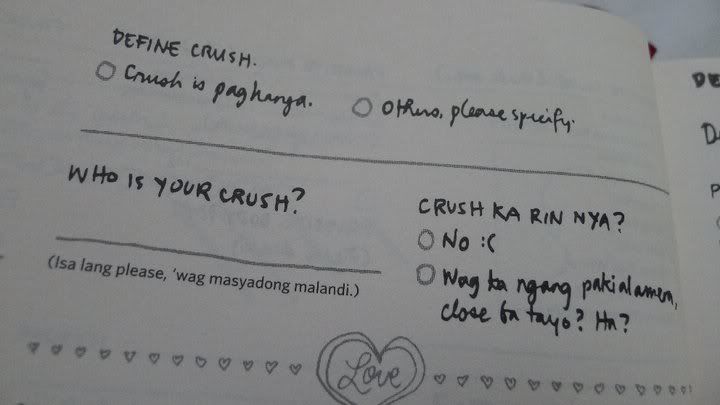 DEFINE CRUSH.
Crush is paghanga.
Others, please specify:
WHO IS YOUR CRUSH?
(Isa lang please, 'wag masyadong malandi.)
CRUSH KA RIN NYA?
No :(
Wag ka ngang pakialamera,
close ba tayo? Ha?
Love
DE
D
P